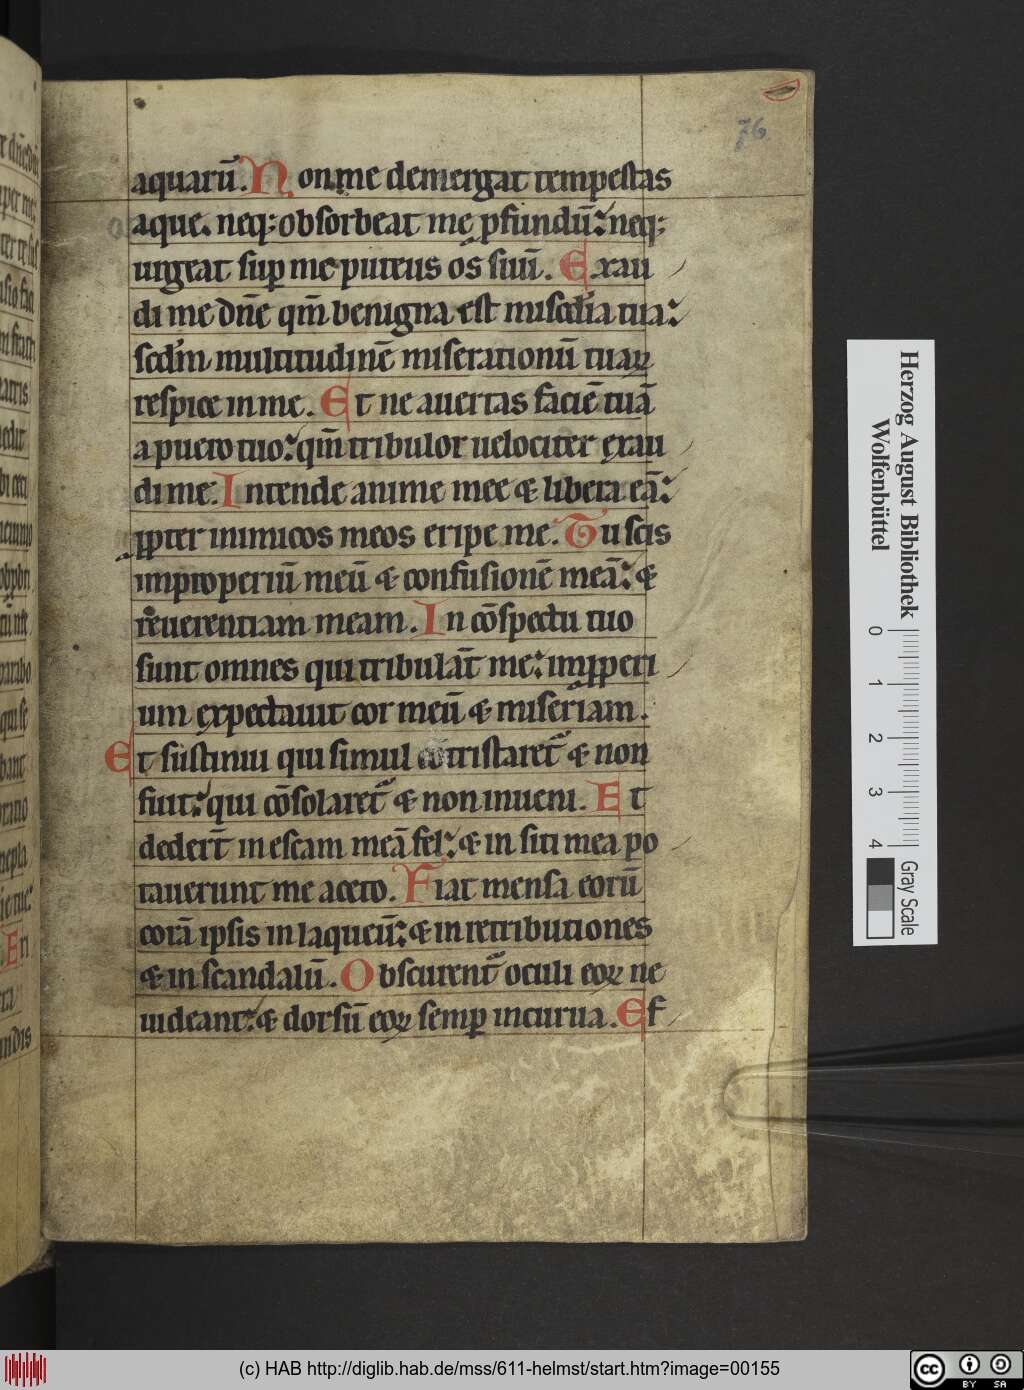 76
aquarū. Non me demergat tempestas
aque. neq; obsorbeat me ꝓfundū: neq;
urgeat suꝑ me puteus os suū. Exau
di me dn̄e qm̄ benigna est misc̄dia tua:
scd̄m multitudinē miserationū tuaꝝ
respice in me. Et ne auertas faciē tuā
a puero tuo: qm̄ tribulor uelociter exau
di me. Intende anime mee & libera eā:
ꝓpter inimicos meos eripe me. Tu scis
improperiū meū & confusionē meā: &
reuerentiam meam. In cōspectu tuo
sunt omnes qui tribulāt me: imꝓperi
um expectauit cor meū & miseriam.
Et sustinui qui simul cōtristaret᷑ & non
fuit: qui cōsolaret᷑ & non inueni. Et
dedert̄ in escam meā fel: & in siti mea po
tauerunt me aceto. Fiat mensa eorū
corā ipsis in laqueū: & in retributiones
& in scandalū. Obscurent᷑ oculi eoꝝ ne
uideant: & dorsū eoꝝ semꝑ incurua. Ef
Herzog August Bibliothek
Wolfenbüttel
0 1 2 3 4
Gray Scale
(c) HAB http://diglib.hab.de/mss/611-helmst/start.htm?image=00155
cc BY SA